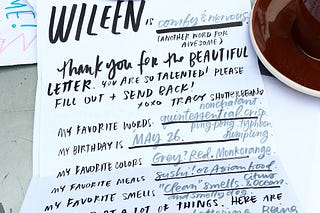 WILEEN is comfy & nervous
(ANOTHER WORD FOR AWESOME)
Thank you for the BEAUTIFUL
LETTER. YOU ARE SO TALENTED! PLEASE
FILL OUT + SEND BACK!
XOXO TRACY
nonchalant.
MY FAVORITE WORDS: quintessential, crisp,
ping pong, typhoon
dumpling.
MY BIRTHDAY IS MAY 26.
MY FAVORITE COLORS Grey! Red.
MY FAVORITE MEALS Sushi! or Asian food
citrus
MY FAVORITE SMELLS "clean" smells & ocean.
A LOT OF THINGS. HERE ARE